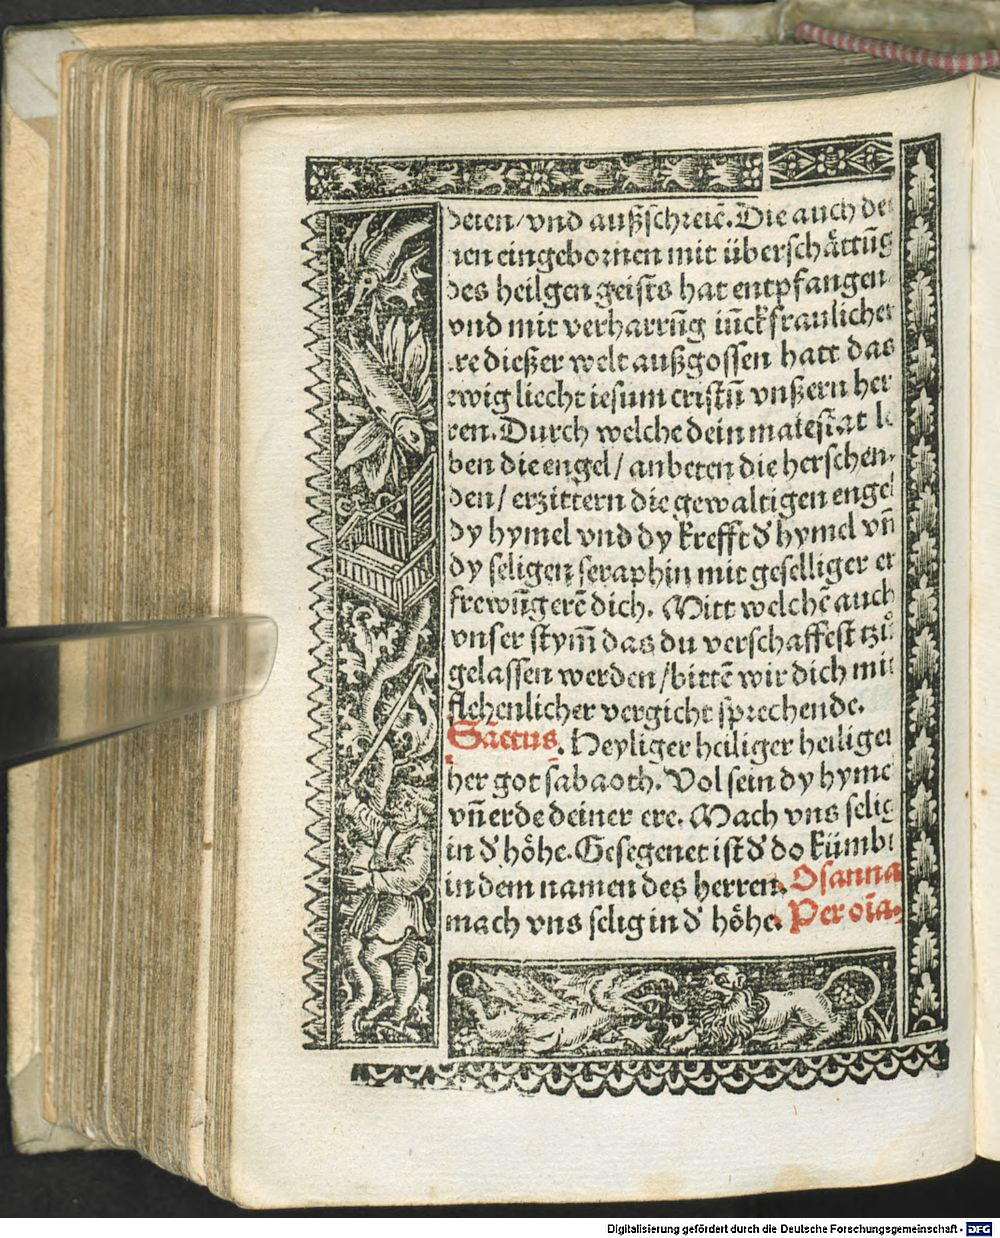 deten/ vnd außschreiē. Die auch dei
nen eingebornen mit überschåttūg
des heilgen geists hat entpfangen
vnd mit verharrūg iūckfraulicher
re dießer welt außgossen hatt das
ewig liecht iesum cristū vnßern her
ren. Durch welche dein maiestat lo
ben die engel/ anbeten die herschen-
den/ erzittern die gewaltigen engel
dy hymel vnd dy krefft d' hymel vn̄
dy seligen seraphin mit geselliger er
frewūg erē dich. Mitt welchē auch
vnser stym̄ das du verschaffest tzů
gelassen werden/ bittē wir dich mit
flehenlicher vergicht sprechende.
Sāctus. Heyliger heiliger heiliger
her got sabaoth. Vol sein dy hyme
vn̄ erde deiner ere. Mach vns selig
in d' höhe. Gesegenet ist d' do kümbt
in dem namen des herren. Osanna
mach vns selig in d' höhe. Per oīa.
Digitalisierung gefördert durch die Deutsche Forschungsgemeinschaft - DFG